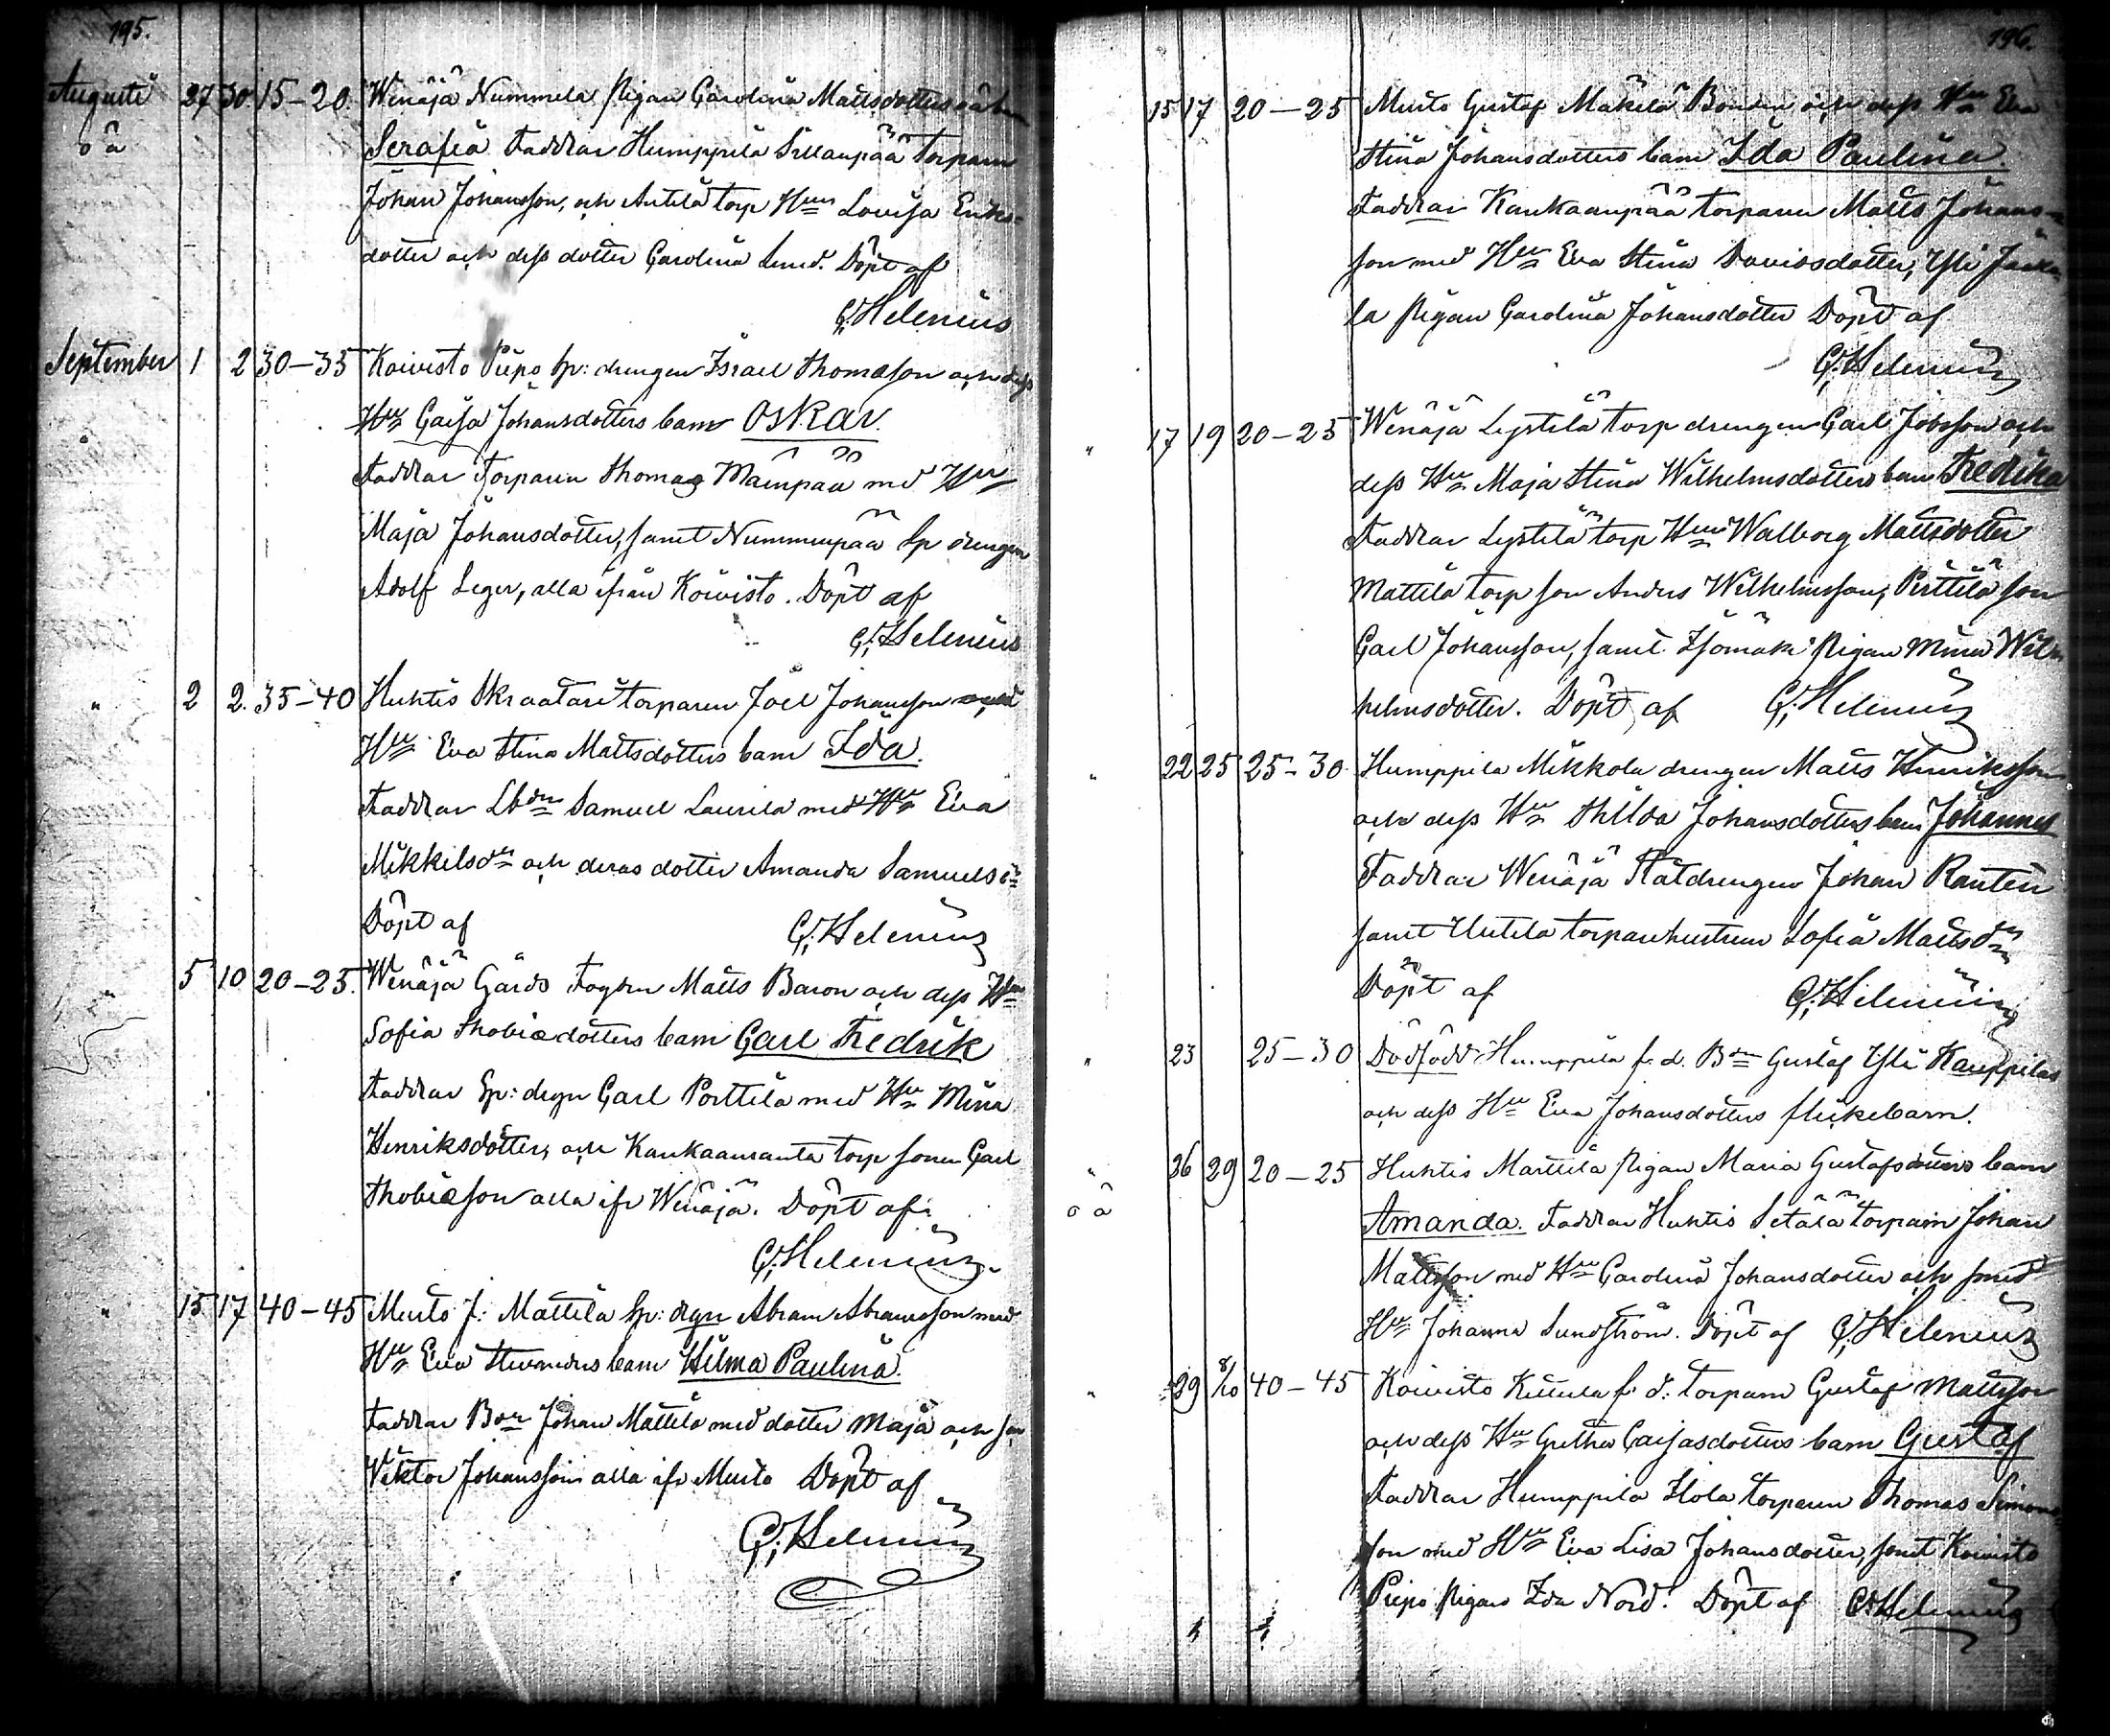 195.
Augusti 27 30 15-20. Wenäjä Nummela Pigan Carolina Mattsdotters
o ä Serafia Faddrar Humppila Sillanpää Torparen
Johan Johansson, och Antila torp Hun Lovisa Eriks-
dotter och dess dotter Carolina Lund. Döpt af
C. Helenius
September 1 2 30-35 Koivisto Piipo Sp: drengen Israel Thomasson och dess
Hu Caisa Johansdotters barn Oskar.
Faddrar Torparen Thomas Mäenpää med Hu
Maja Johansdotter, samt Nummenpää Sp drengen
Adolf Leger, alla ifrån Koivisto. Döpt af
C. Helenius
" 2 2. 35-40 Huhtis Skraatari torparen Joel Johansson
Hu Eva Stina Mattsdotters barn Ida.
Faddrar Lbdn Samuel Laurila med Hu Eva
Mikkilsdr och deras dotter Amanda Samuelsdr
Döpt af C. Helenius
" 5 10 20-25. Wenäjä Gårds Fogden Matts Baron och dess Hu
Sofia Thobiædotters barn Carl Fredrik
Faddrar Sp: drgn Carl Porttila med Hu Mina
Henriksdotter, och Kankaanranta torp sonen Carl
Thobiæson alla ifr Wenäjä. Döpt af:
C. Helenius
" 15 17 40-45 Murto J: Mattila Sp: drgn Abram Abramsson med
Hu Eva barn Hilma Paulina.
Faddrar Bon Johan Mattila med dotter Maja och son
Viktor Johansson alla ifr Murto Döpt af
C. Helenius
196.
15 17 20-25 Murto Gustaf Mäkilä Bonden och dess Hu Eva
Stina Johansdotters barn Ida Paulina.
Faddrar Kankaanpää torparen Matts Johans-
son med Hu Eva Stina Davidsdotter, Yli Jaakko
la Pigan Carolina Johansdotter Döpt af
C. Helenius
" 17 19 20-25 Wenäjä Leystilä torp drengen Carl Jobsson och
dess Hu Maja Stina Wilhelmsdotters barn Fredrika
Faddrar Leystilä torp Hun Walborg Mattsdotter
Mattila torp son Anders Wilhelmsson, Perttilä son
Carl Johansson, samt Isomäki Pigan Mina Wil-
helmsdotter. Döpt af C. Helenius
" 22 25 25-30. Humppila Mikkola drengen Matts Henriksson
och dess Hu Thilda Johansdotters barn Johannes
Faddrar Wenäjä Statdrengen Johan Ranten
samt Uutela torparehustrun Sofia Mattsdr
Döpt af C. Helenius
" 23 25-30 Dödfödd Humppila f. d. Bdn Gustaf Yli Kauppilas
och dess Hu Eva Johansdotters flickebarn.
" 26 29 20-25 Huhtis Marttila Pigan Maria Gustafsdotters barn
o ä Amanda. Faddrar Huhtis Setälä torparen Johan
Mattsson med Hu Carolina Johansdotter och smed
Hu Johanna Sundström. Döpt af C. Helenius
" 29 8/10 40-45 Koivisto f. d. Torparen Gustaf Mattsson
och dess Hu Gretha Caisasdotters barn Gustaf
Faddrar Humppila Hola torparen Thomas Simons-
son med Hu Eva Lisa Johansdotter, samt Koivisto
Piipo Pigan Ida Nord. Döpt af C. Helenius